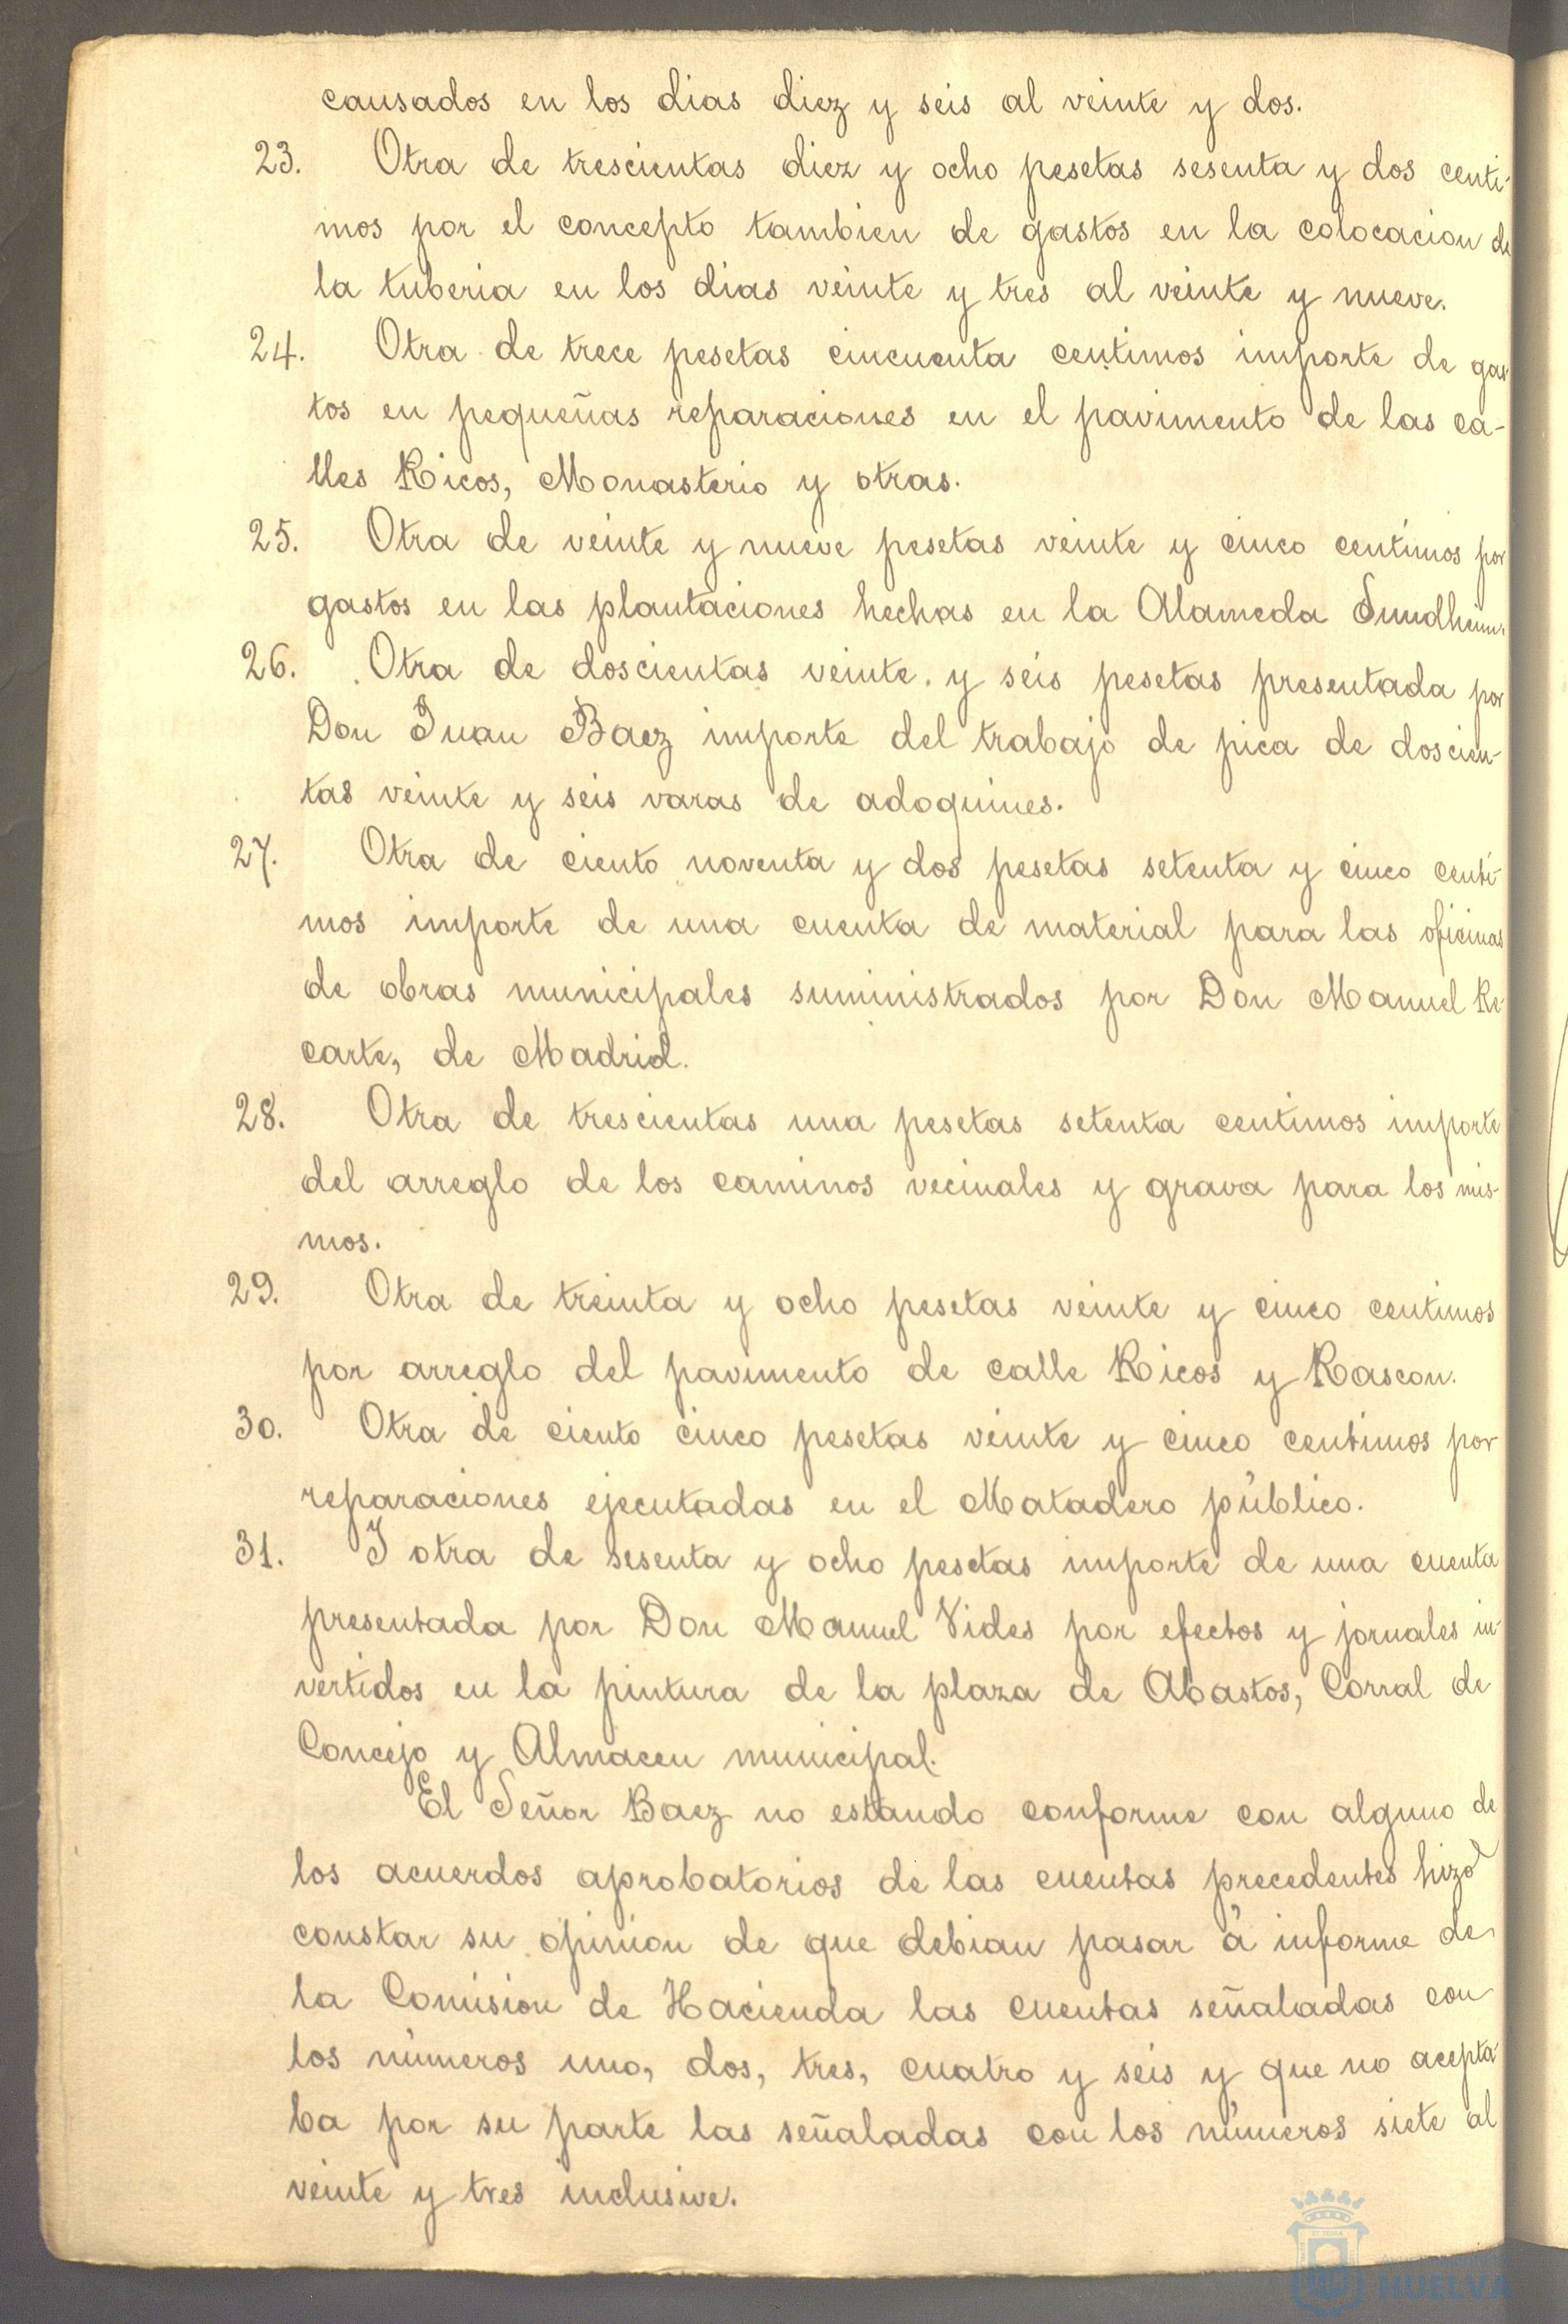 causados en los dias diez y seis al veinte y dos.
23. Otra de trescientas diez y ocho pesetas sesenta y dos centi-
mos por el concepto tambien de gastos en la colocacion de
la tuberia en los dias veinte y tres al veinte y nueve.
24. Otra de trece pesetas cincuenta centimos importe de gas
tos en pequeñas reparaciones en el pavimento de las ca-
lles Ricos, Monasterio y otras.
25. Otra de veinte y nueve pesetas veinte y cinco centimos por
gastos en las plantaciones hechas en la Alameda Sundheim.
26. Otra de doscientas veinte y seis pesetas presentada por
Don Juan Baez importe del trabajo de pica de doscien-
tas veinte y seis varas de adoquines.
27. Otra de ciento noventa y dos pesetas setenta y cinco centi-
mos importe de una cuenta de material para las oficinas
de obras municipales suministrados por Don Manuel Re-
carte, de Madrid.
28. Otra de trescientas una pesetas setenta centimos importe
del arreglo de los caminos vecinales y grava para los mis-
mos.
29. Otra de treinta y ocho pesetas veinte y cinco centimos
por arreglo del pavimento de calle Ricos y Rascon.
30. Otra de ciento cinco pesetas veinte y cinco centimos por
reparaciones ejecutadas en el Matadero público.
31. I otra de sesenta y ocho pesetas importe de una cuenta
presentada por Don Manuel Vides por efectos y jornales in-
vertidos en la pintura de la plaza de Abastos, Corral de
Concejo y Almacen municipal.
El Señor Baez no estando conforme con alguno de
los acuerdos aprobatorios de las cuentas precedentes hizo
constar su opinion de que debian pasar á informe de
la Comision de Hacienda las cuentas señaladas con
los números uno, dos, tres, cuatro y seis y que no acepta-
ba por su parte las señaladas con los números siete al
veinte y tres inclusive.
HUELVA